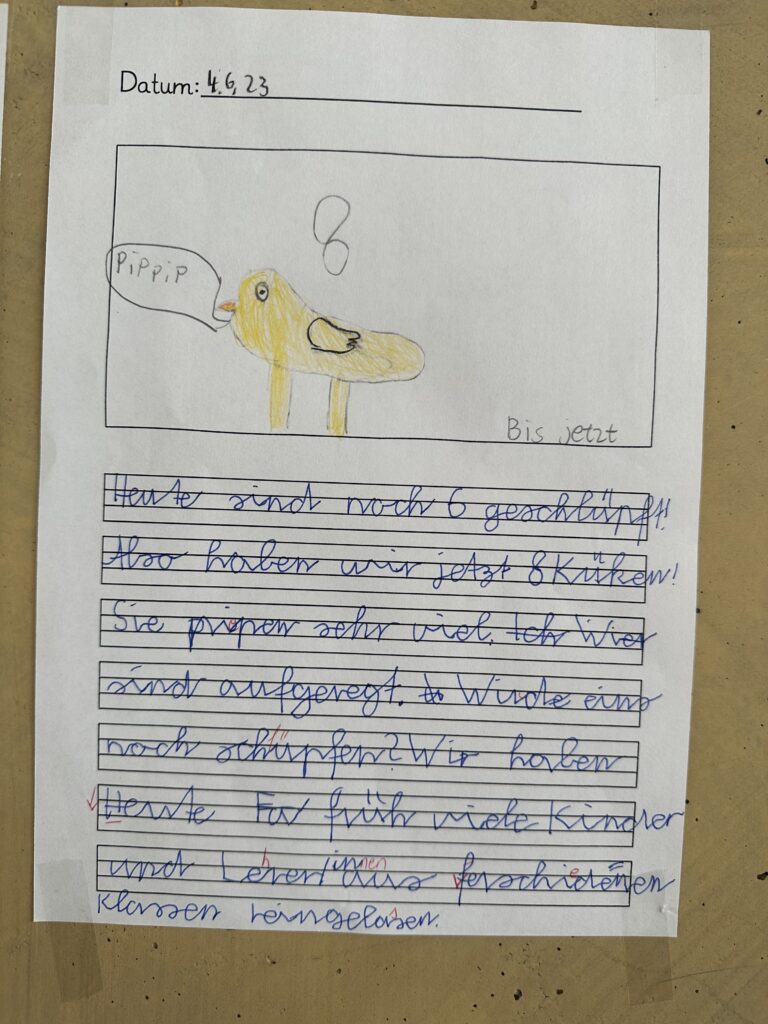 Datum: 4.6.23
8
PiPPiP
Bis jetzt
Heute sind noch 6 geschlüpft!
Also haben wir jetzt 8 Küken!
Sie pipen sehr viel. Ich Wier
sind aufgeregt. Wirde eins
noch schlüpfen? Wir haben
Heute früh viele Kinder
und Lehrer/innen aus ferschiedenen
Klassen reingelasen.